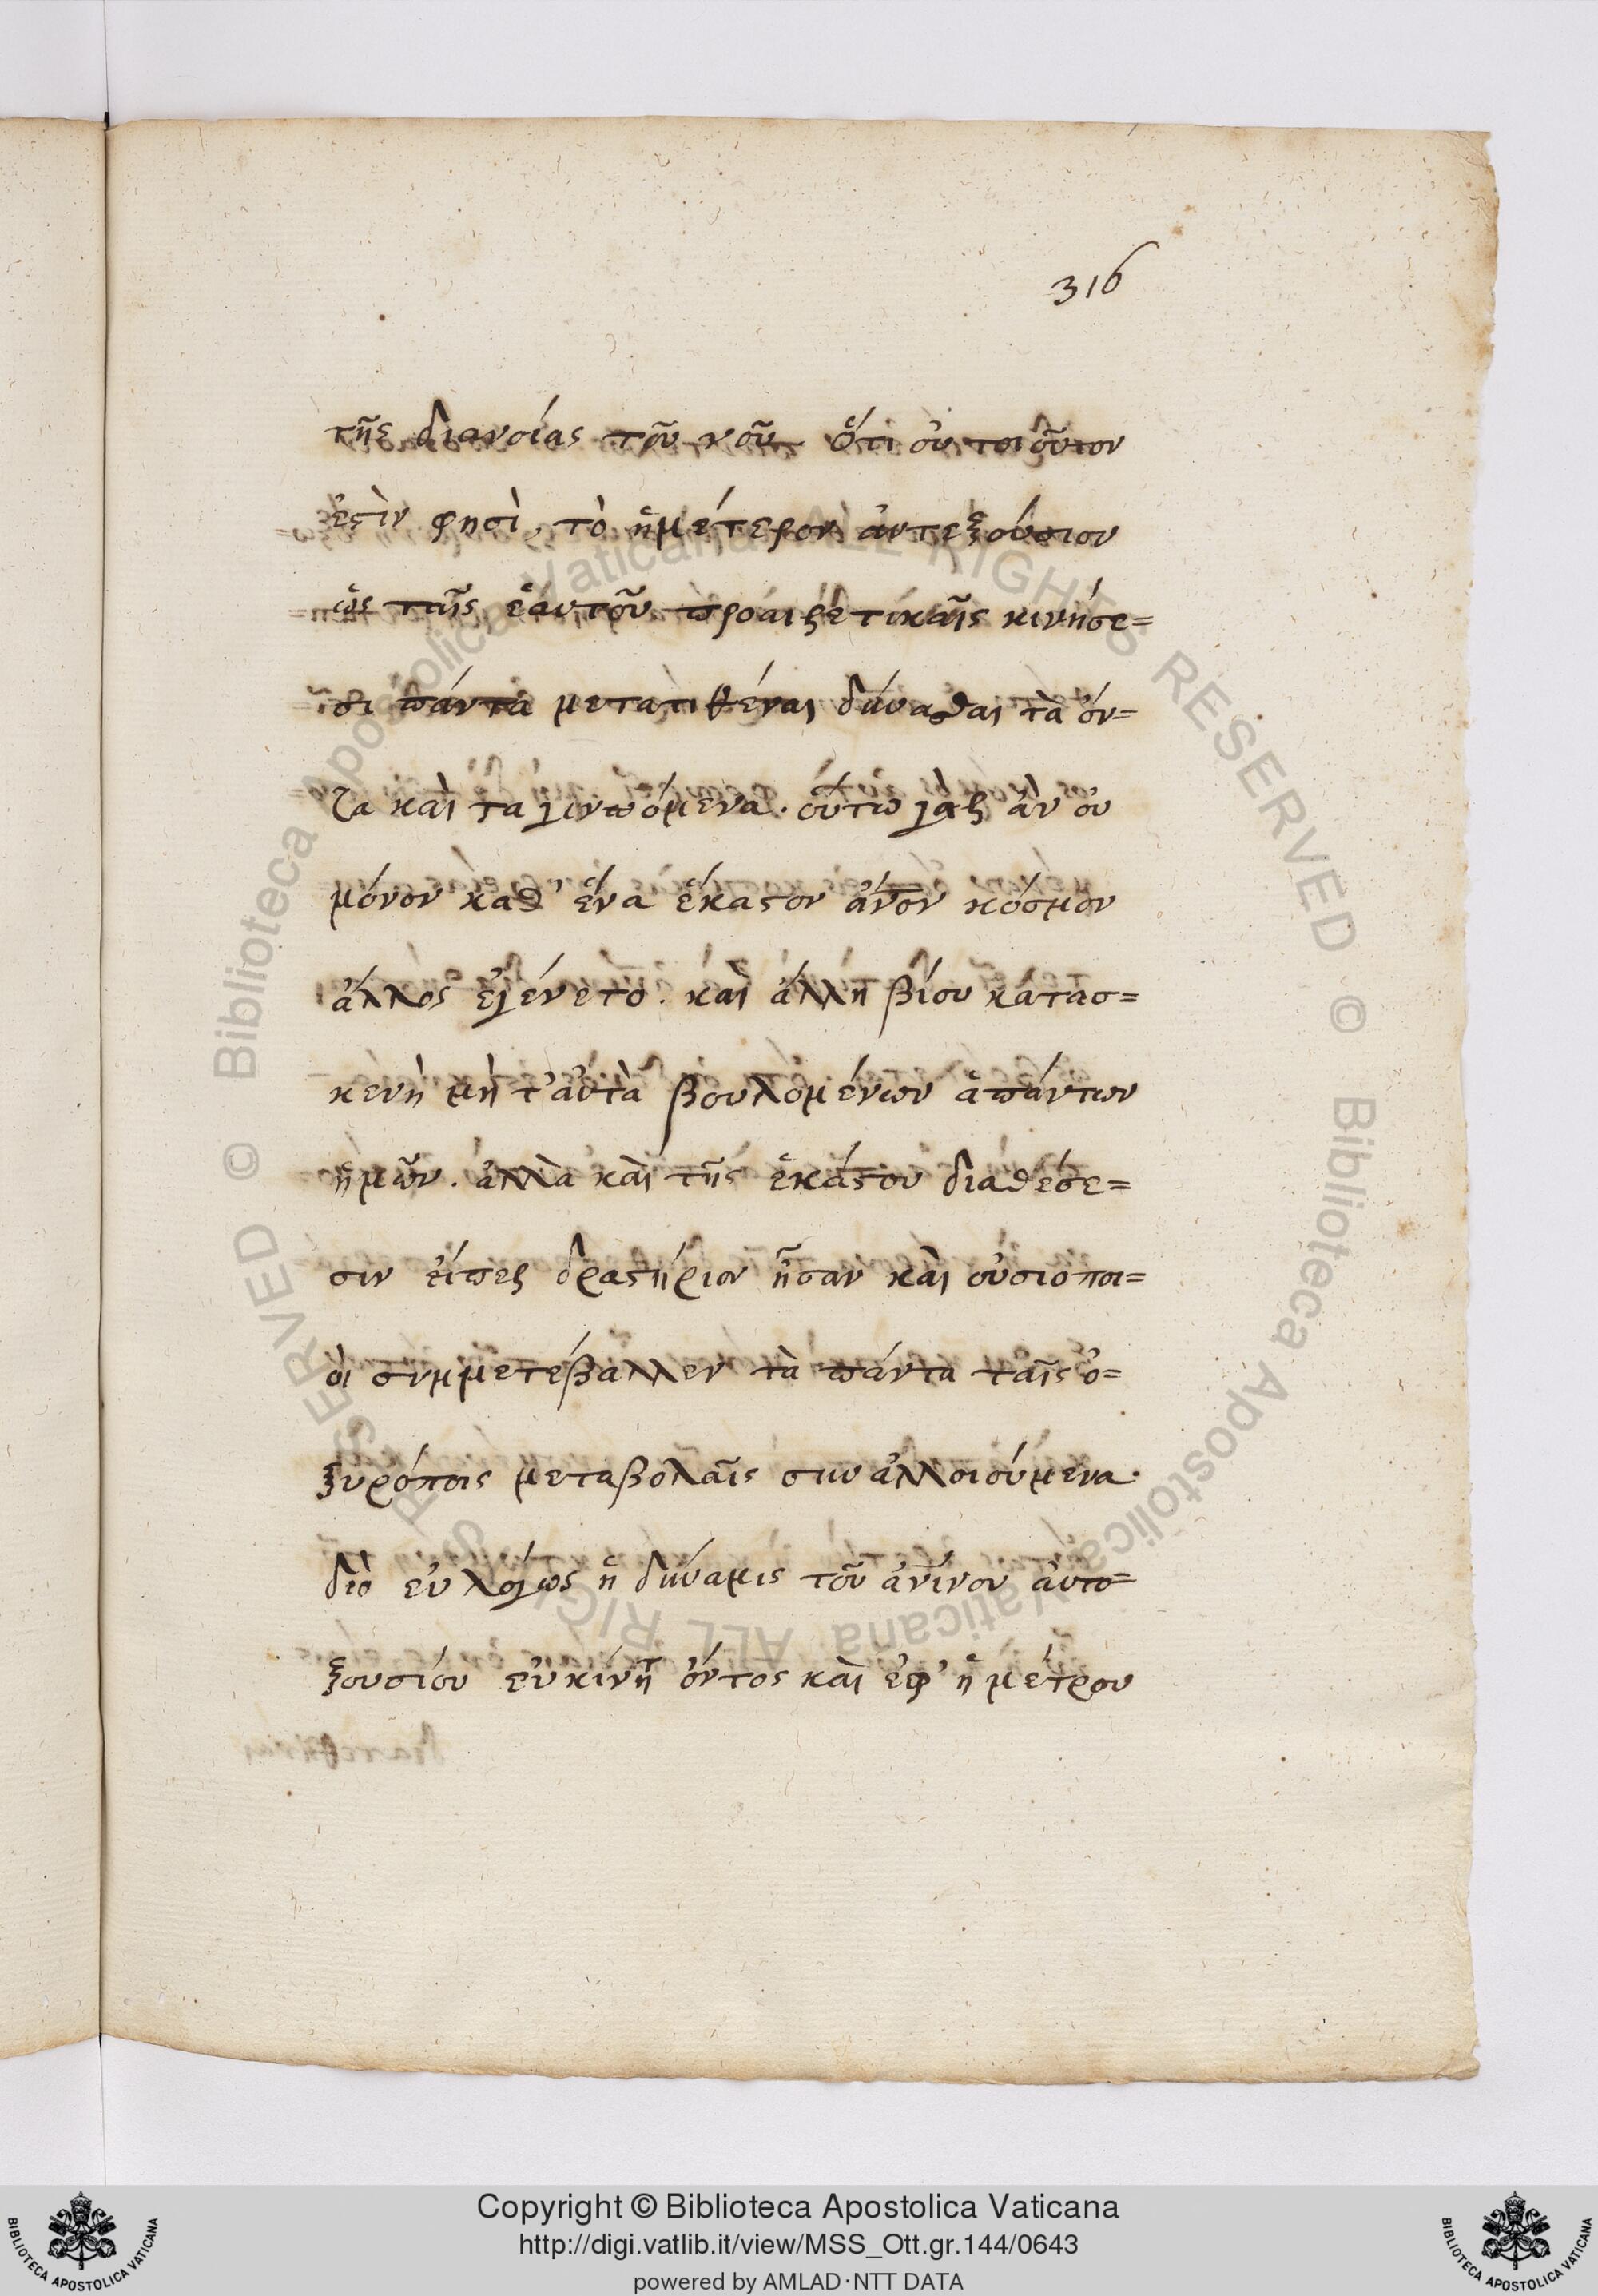 316
τῆς διανοίας τοῦ νοῦ. ὅτι οὐ τοιοῦτον
ἐστὶν φησὶ, τὸ ἡμέτερον ἀντεξούσιον
ὡς ταῖς ἑαυτοῦ προαιρετικαῖς κινήσε=
σι πάντα μετατιθέναι δύνασθαι τὰ ὄν=
τα καὶ τα γινωόμενα. οὕτω γὰρ ἀν οὐ
μόνον καθ' ἕνα ἕκαστον ἄνον κόσμον
ἄλλος ἐγένετο. καὶ ἄλλη βίου κατασ=
κευὴ μὴ τ'αὐτὰ βουλομένων ἁπάντων
ἡμῶν. ἀλλὰ καὶ τῆς ἑκάστου διαθέσε=
σιν εἴπερ δραστήριον ἦσαν καὶ οὐσιοποι=
οὶ συμμετέβαλλεν τὰ πάντα ταῖς ὀ=
ξυρόποις μεταβολαῖς συναλλοιούμενα.
διὸ εὐλόγως ἡ δύναμις τοῦ ἀνίνου ἀυτο=
ξουσίου εὐκίνητ ὄντος καὶ ἐφ' ἡμέτρου
Copyright © Biblioteca Apostolica Vaticana
http://digi.vatlib.it/view/MSS_Ott.gr.144/0643
powered by AMLAD·NTT DATA
© Biblioteca Apostolica Vaticana ALL RIGHTS RESERVED
© Biblioteca Apostolica Vaticana ALL RIGHTS RESERVED
BIBLIOTECA APOSTOLICA VATICANA
BIBLIOTECA APOSTOLICA VATICANA